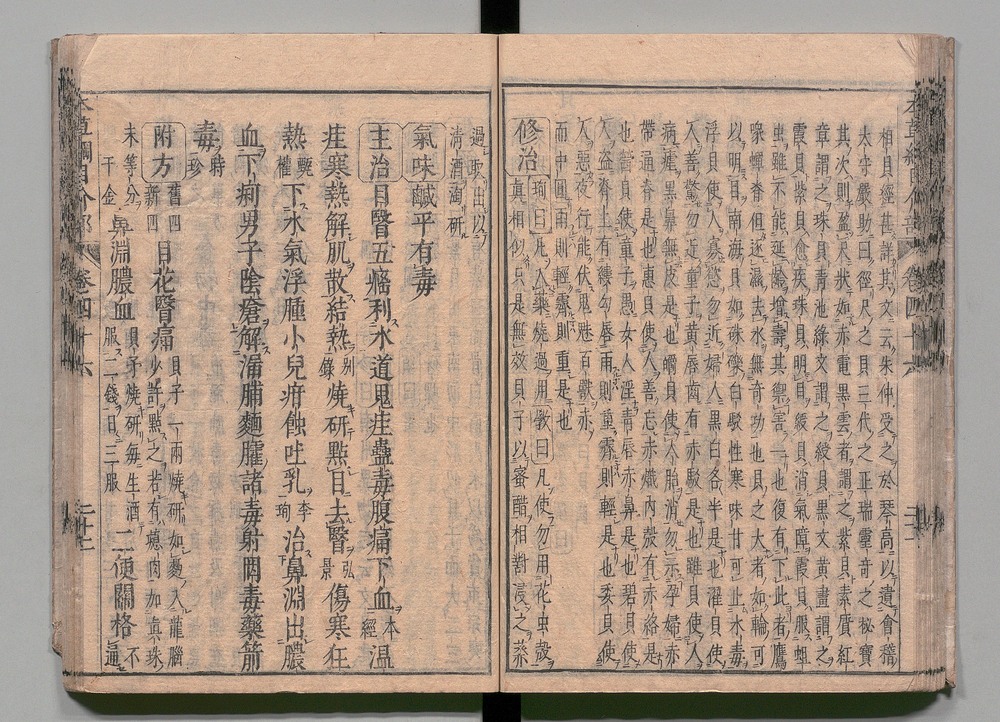 相貝經甚詳其文云朱仲受之於琴高以遺會稽
太守嚴助曰徑尺之貝三代之正瑞靈奇之秘寶
其次則盈尺狀如赤電黑雲者謂之紫貝素質紅
章謂之珠貝青池綠文謂之綬貝黑文黃畫謂之
霞貝紫貝愈疾珠貝明目綬貝消氣障霞貝服蛆
蟲雖不能延齡增壽其禦害一也復有下此者鷹
喙蟬脊但逐濕去水無奇功也貝之大者如輪可
以明目南海貝如硃礫白駮性寒味甘可止水毒
浮貝使人寡慾勿近婦人黑白各半是也濯貝使
人善驚勿近童子黃唇齒有赤駮是也雖貝使
病瘧黑鼻無皮是也嚼貝使人胎消勿示孕婦赤
帶通脊是也惠貝使人善忘赤熾內殼有赤絡是
也醟貝使童子愚女人淫青唇赤鼻是也碧貝使
人盜脊上有縷勾唇雨則重霽則輕是也委貝使
人志强夜行能伏鬼魅百獸赤
而中圓雨則輕霽則重是也
修治 珣曰凡入藥燒過用斅曰凡使勿用花虫殼
真相似只是無效貝子以蜜醋相對浸之蒸
過取出以
清酒淘研
氣味 鹹平有毒
主治 目瞖五癃利水道鬼疰蠱毒腹痛下血本經溫
疰寒熱解肌散結熱別錄燒研點目去瞖弘景傷寒狂
熱甄權下水氣浮腫小兒疳蝕吐乳李珣治鼻淵出膿
血下痢男子陰瘡解漏脯麵臛諸毒射罔毒藥箭
毒時珍
附方 舊四新四 目花瞖痛 貝子一兩燒研如麪入龍腦少許點之若有瘜肉加真珠
末等分千金 鼻淵膿血 貝子燒研每生酒服二錢日三服 二便關格 不通
本草綱目介部 卷四十六